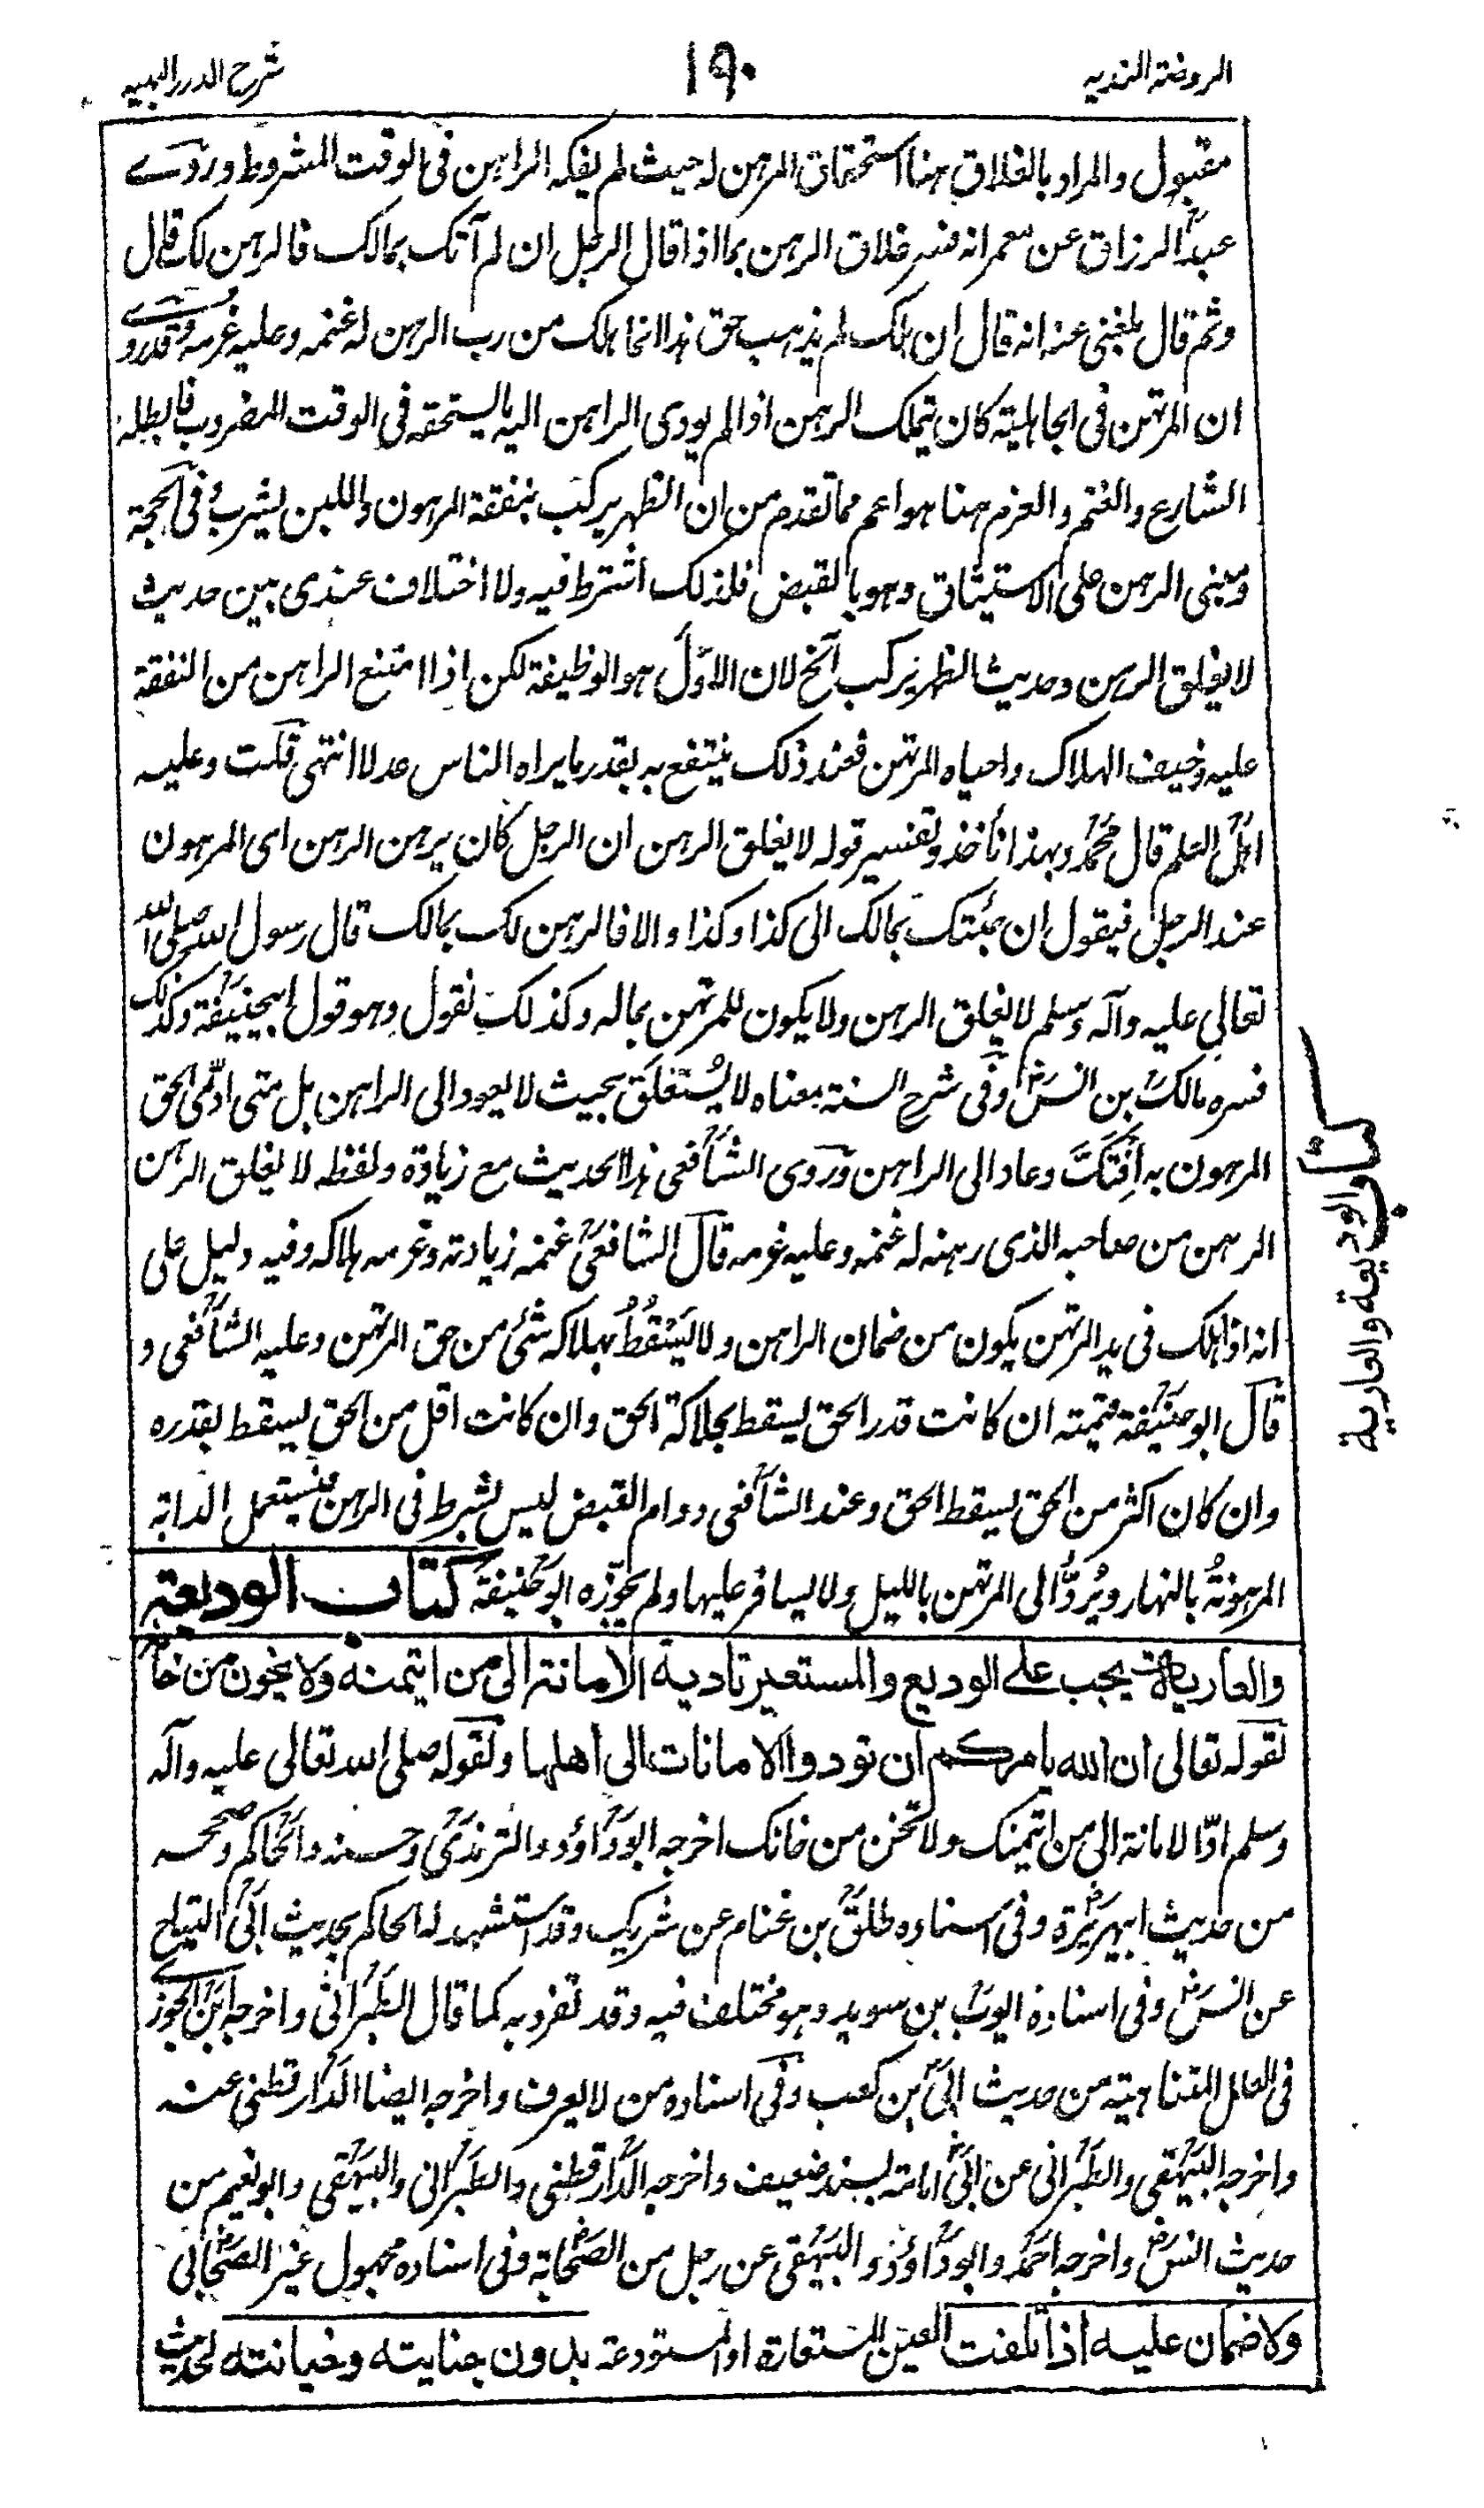 الروضة الندية ١٩٠ شرح الدرر البهية
مقبول والمراد بالغلاق ههنا استحقاق المرتهن له حيث لم يفكه الراهن فى الوقت المشروط وروى
عبد الرزاق عن معمر انه فسر غلاق الرهن بما اذا قال الرجل ان لم آتك بمالك فالرهن لك قال
وثم قال بلغنى عنه انه قال ان هلك لم يذهب حق هذا انما هلك من رب الرهن له غنمه وعليه غرمه وقد روى
ان المرتهن فى الجاهلية كان يتملك الرهن اذا لم يودى الراهن اليه ما يستحقه فى الوقت المضروب فابطله
الشارع والغنم والغرم ههنا هو اعم مما تقدم من ان الظهر يركب بنفقة المرهون واللبن يشرب فى الحجة
ومبنى الرهن على الاستيثاق وهو بالقبض فلذلك اشترط فيه ولا اختلاف عندى بين حديث
لا يغلق الرهن وحديث الظهر يركب الخ لان الاول هو الوظيفة لكن اذا امتنع الراهن من النفقة
عليه وخيف الهلاك واحياه المرتهن فعند ذلك ينتفع به بقدر ما يراه الناس عدلا انتهى قلت وعليه
اهل العلم قال محمد وبهذا نأخذ وتفسير قوله لا يغلق الرهن ان الرجل كان يرهن الرهن اى المرهون
عند الرجل فيقول ان جئتك بمالك الى كذا وكذا والا فالرهن لك بمالك قال رسول الله صلى الله
تعالى عليه وآله وسلم لا يغلق الرهن ولا يكون للمرتهن بماله وكذلك نقول وهو قول ابيحنيفة وكذلك
فسره مالك بن انس وفى شرح السنة معناه لا يستغلق بحيث لا يعود الى الراهن بل متى ادّى الحق
المرهون به افتكّ وعاد الى الراهن وروى الشافعى هذا الحديث مع زيادة ولفظه لا يغلق الرهن
الرهن من صاحبه الذى رهنه له غنمه وعليه غرمه قال الشافعى غنمه زيادته وغرمه هلاكه وفيه دليل على
انه اذا هلك فى يد المرتهن يكون من ضمان الراهن ولا يسقط بهلاكه شئ من حق المرتهن وعليه الشافعى و
قال ابو حنيفة قيمته ان كانت قدر الحق يسقط بهلاكه الحق وان كانت اقل من الحق يسقط بقدره
وان كان اكثر من الحق يسقط الحق وعند الشافعى دوام القبض ليس بشرط فى الرهن فيستعمل الدابة
المرهونة بالنهار ويردّ الى المرتهن بالليل ولا يسافر عليها ولم يجوّزه ابو حنيفة كتاب الوديعة
والعارية يجب على الوديع والمستعير تادية الامانة الى من ايتمنه ولا يخون من خانه
لقوله تعالى ان الله يامركم ان تودوا الامانات الى اهلها ولقوله صلى الله تعالى عليه وآله
وسلم ادّ الامانة الى من ايتمنك ولا تخن من خانك اخرجه ابو داؤد والترمذى وحسنه والحاكم وصححه
من حديث ابيهريرة وفى اسناده طلق بن غنام عن شريك وقد استشهد له الحاكم بحديث ابى التياح
عن انس وفى اسناده ايوب بن سويد وهو مختلف فيه وقد تفرد به كما قال الطبرانى واخرجه ابن الجوزى
فى العلل المتناهية من حديث ابىّ بن كعب وفى اسناده من لا يعرف واخرجه ايضا الدارقطنى عنه
واخرجه البيهقى والطبرانى عن ابى امامة بسند ضعيف واخرجه الدارقطنى والطبرانى والبيهقى وابو نعيم من
حديث انس واخرجه احمد وابو داؤد والبيهقى عن رجل من الصحابة وفى اسناده مجهول غير الصحابى
ولا ضمان عليه اذا تلفت العين المستعارة او المستودعة بدون جنايته وخيانته لحديث
كتاب الوديعة والعارية